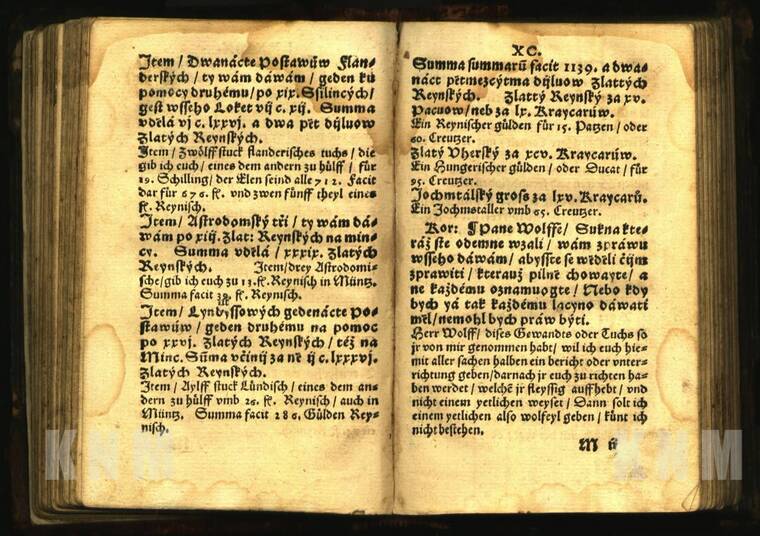 Item / Dwanácte Postawůw Flan-
derských / ty wám dáwám / geden ku
pomocy druhému / po xix. Ssilincých /
gest wsseho Loket vij c. xij. Summa
vdělá vj c. lxxvj. a dwa pět dijluow
Zlatých Reynských.
Item / Zwölff stuck flanderisches tuchs / die
gib ich euch / eines dem andern zu hülff / für
19. Schilling / der Elen seind alle 712. Facit
dar für 676. fl. vnd zwen fünff theyl eines
fl. Reynisch.
Item / Astrodomský tři / ty wám dá-
wám po xiij. Zlat: Reynských na min-
cy. Summa vdělá / xxxix. Zlatých
Reynských. Item / drey Astrodomi-
sche / gib ich euch zu 13. fl. Reynisch in Müntz.
Summa facit 39. fl. Reynisch.
Item / Lyndyssowých gedenácte po-
stawůw / geden druhému na pomoc
po xxvj. Zlatých Reynských / též na
Minc. Sūma včinij za ně ij c. lxxxvj.
Zlatých Reynských.
Item / Aylff stuck Lündisch / eines dem an-
dern zu hülff vmb 26. fl. Reynisch / auch in
Müntz. Summa facit 286. Gülden Rey-
nisch.
XC.
Summa summarū facit 1139. a dwa-
náct pětmezcýtma dijluow Zlattých
Reynských. Zlattý Reynský za xv.
Pacuow / neb za lx. Kraycarúw.
Ein Reynischer gülden für 15. Patzen / oder
60. Creutzer.
Zlatý Vherský za xcv. Kraycarúw.
Ein Hungerischer gülden / oder Ducat / für
95. Creutzer.
Jochmtálský gross za lxv. Kraycarů.
Ein Jochmstaller vmb 65. Creutzer.
Kor: ¶ Pane Wolffe / Sukna kte-
ráž ste odemne wzali / wám zpráwu
wsseho dáwám / abysste se wěděli čijm
zprawiti / kterauž pilně chowayte / a
ne každému oznamuogte / Nebo kdy
bych yá tak každému lacyno dáwati
měl / nemohl bych práw býti.
Herr Wolff / dises Gewandts oder Tuchs so
jr von mir genommen habt / wil ich euch hie-
mit aller sachen halben ein bericht oder vnter-
richtung geben / darnach jr euch zu richten ha-
ben werdet / welchē jr fleyssig auffhebt / vnd
nicht einem yetlichen weyset / Dann solt ich
einem yetlichen also wolfeyl geben / künt ich
nicht bestehen.
M ij
KNM
KNM